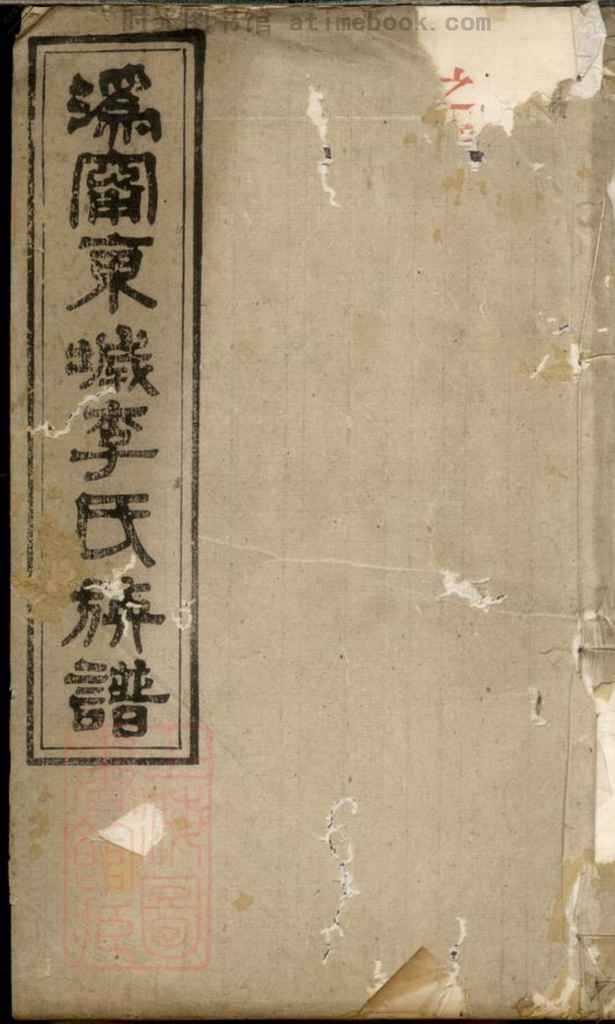 时光图书馆 atimebook.com
溈甯東城李氏族譜